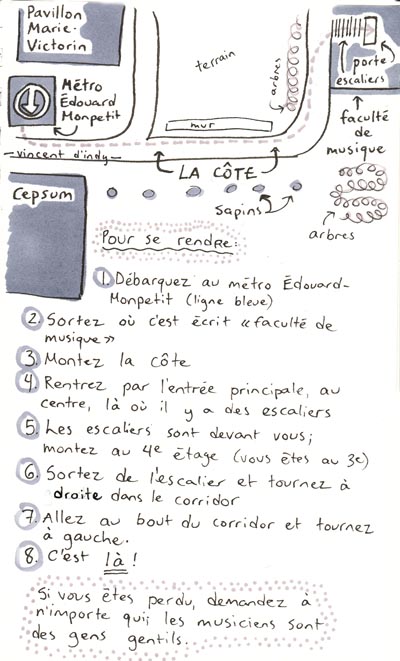 Pavillon
Marie-
Victorin
Métro
Édouard
Monpetit
terrain
arbres
mur
porte
escaliers
faculté
de
musique
vincent d'indy
LA CÔTE
Cepsum
sapins
arbres
Pour se rendre:
1. Débarquez au métro Édouard-
Monpetit (ligne bleue)
2. Sortez où c'est écrit « faculté de
musique »
3. Montez la côte
4. Rentrez par l'entrée principale, au
centre, là où il y a des escaliers
5. Les escaliers sont devant vous;
montez au 4e étage (vous êtes au 3e)
6. Sortez de l'escalier et tournez à
droite dans le corridor
7. Allez au bout du corridor et tournez
à gauche.
8. C'est là !
Si vous êtes perdu, demandez à
n'importe qui; les musiciens sont
des gens gentils.